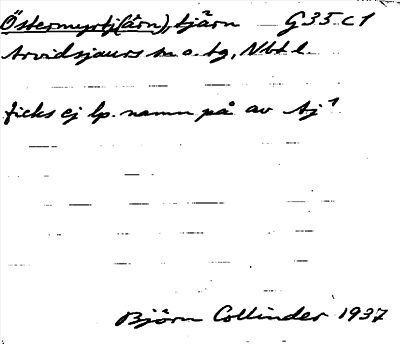 Östermyrtj(ärn), tjärn G35 c 1
Arvidsjaurs sn o. tg, Nbt l.
ficks ej lp. namn på av Aj¹
Björn Collinder 1937